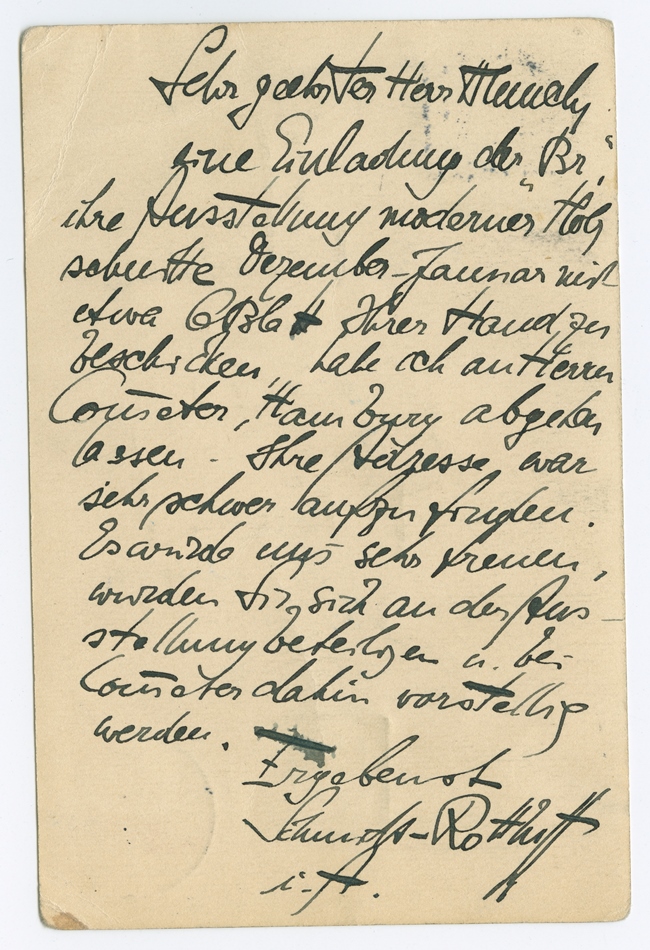 Sehr geehrter Herr Munch,
eine Einladung der "Br."
ihre Ausstellung moderner Holz
schnitte Dezember-Januar mit
etwa 6 Blatt Ihrer Hand zu
beschicken, habe ich an Herrn
Cometer, Hamburg abgehen
lassen - Ihre Adresse war
sehr schwer aufzufinden.
Es würde uns sehr freuen,
wurden Sie sich an der Aus-
stellung beteiligen u. bei
Cometer dahin vorstellig
werden.
Ergebenst
Schmidt-Rottluff
i. A.